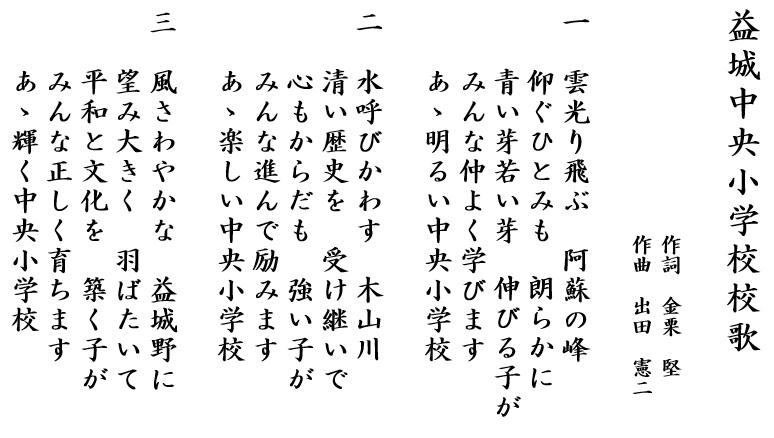 益城中央小学校校歌
作詞　金栗　堅
作曲　出田　憲二
一　雲光り飛ぶ　阿蘇の峰
仰ぐひとみも　朗らかに
青い芽若い芽　伸びる子が
みんな仲よく学びます
あゝ明るい中央小学校
二　水呼びかわす　木山川
清い歴史を　受け継いで
心もからだも　強い子が
みんな進んで励みます
あゝ楽しい中央小学校
三　風さわやかな　益城野に
望み大きく　羽ばたいて
平和と文化を　築く子が
みんな正しく育ちます
あゝ輝く中央小学校